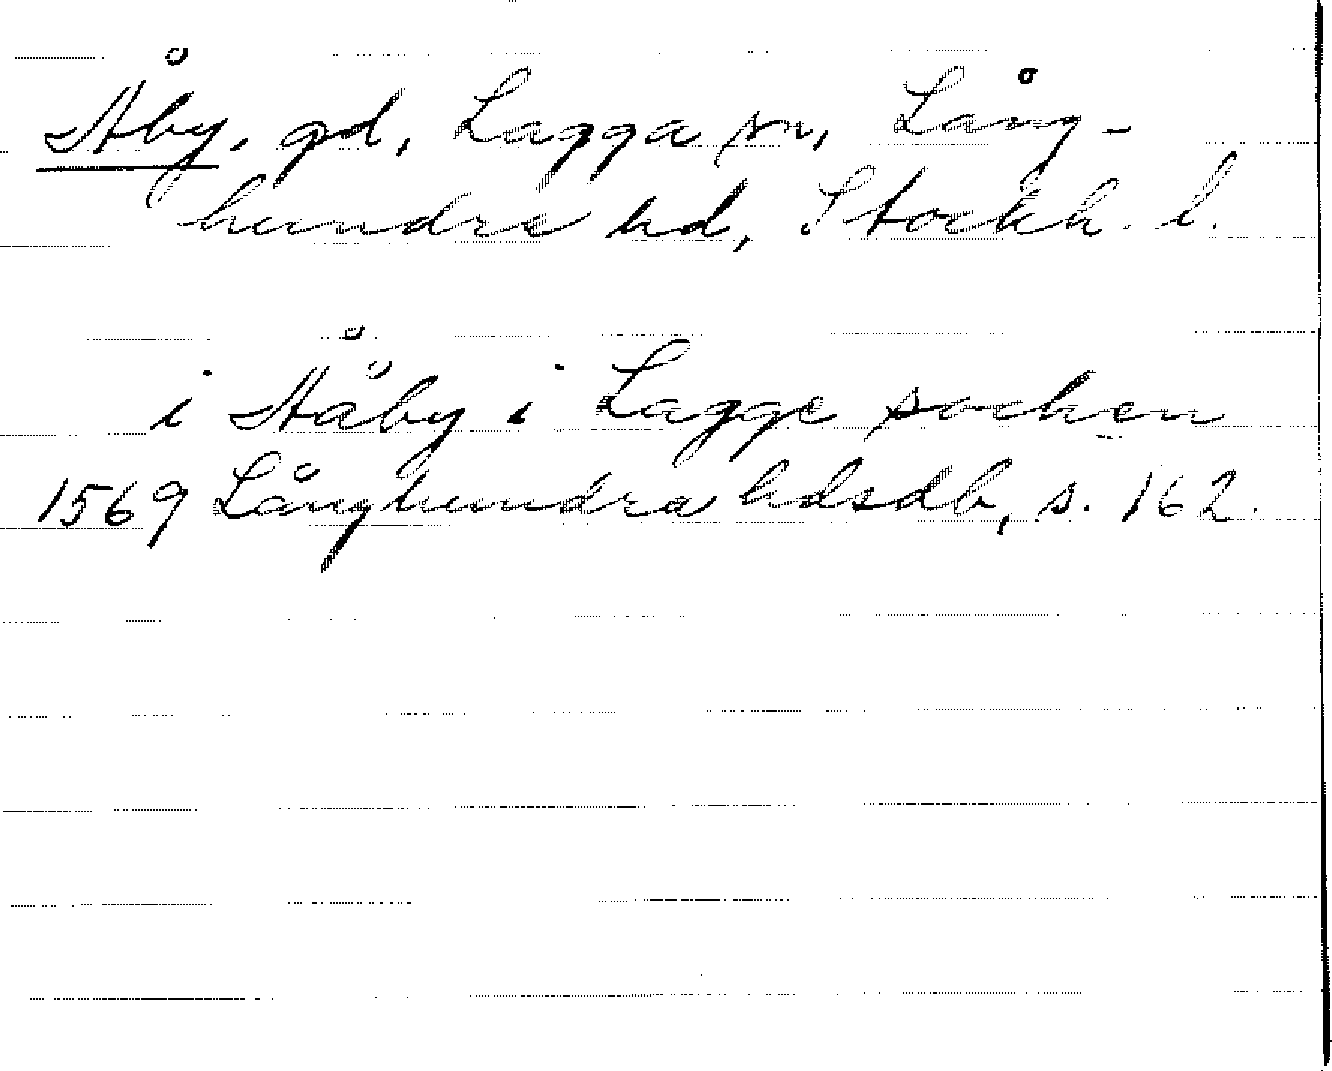 Åby, gd, Lagga sn, Lång-
hundra hd, Stockh. l.
i Ååby i Lagge sochen
1569 Långhundra hdsdb, s. 162.